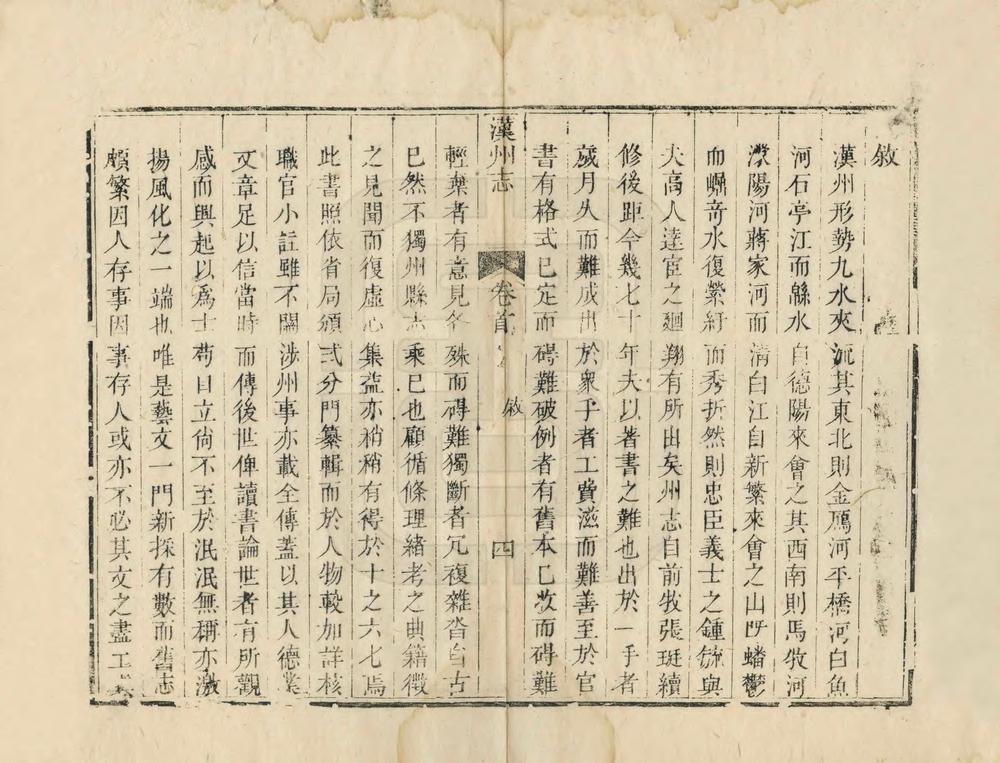 敘
漢州形勢九水夾流其東北則金鴈河平橋河白魚
河石亭江而緜水自德陽來會之其西南則馬牧河
濛陽河蔣家河而清白江自新繁來會之山旣蟠鬱
而崛奇水復縈紆而秀折然則忠臣義士之鍾毓與
夫高人達宦之廻翔有所出矣州志自前牧張珽續
修後距今幾七十年夫以著書之難也出於一手者
歲月久而難成出於衆手者工費滋而難善至於官
書有格式已定而碍難破例者有舊本已改而碍難
漢州志
卷首
敘
四
輕棄者有意見各殊而碍難獨斷者冗複雜沓自古
已然不獨州縣志乘已也顧循條理緒考之典籍徵
之見聞而復虛心集益亦稍稍有得於十之六七焉
此書照依省局頒式分門纂輯而於人物較加詳核
職官小註雖不關涉州事亦載全傳蓋以其人德業
文章足以信當時而傳後世俾讀書論世者有所觀
感而興起以爲士苟自立尙不至於泯泯無稱亦激
揚風化之一端也唯是藝文一門新採有數而舊志
頗繁因人存事因事存人或亦不必其文之盡工